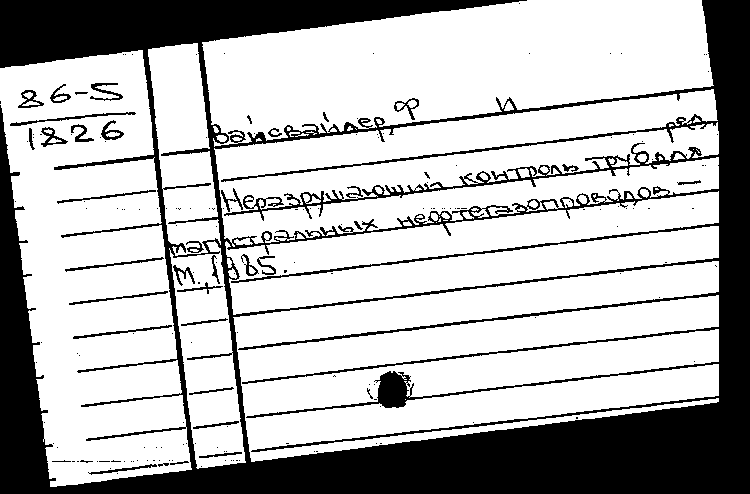 86-5
1826
Вайсвайлер, Ф И
ред.
Неразрушающий контроль труб для
магистральных нефтегазопроводов. —
М., 1985.